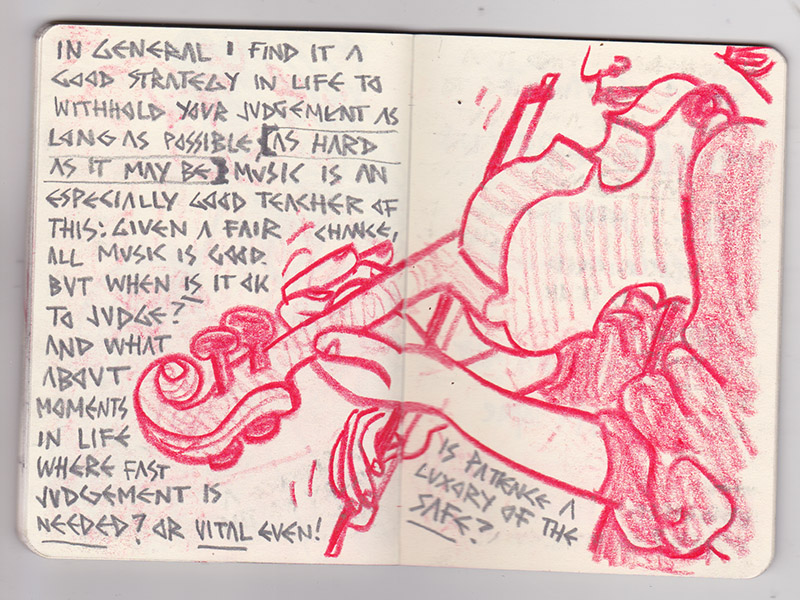 IN GENERAL I FIND IT A
GOOD STRATEGY IN LIFE TO
WITHHOLD YOUR JUDGEMENT AS
LONG AS POSSIBLE, [AS HARD
AS IT MAY BE] MUSIC IS AN
ESPECIALLY GOOD TEACHER OF
THIS: GIVEN A FAIR CHANCE,
ALL MUSIC IS GOOD.
BUT WHEN IS IT OK
TO JUDGE?
AND WHAT
ABOUT
MOMENTS
IN LIFE
WHERE FAST
JUDGEMENT IS
NEEDED? OR VITAL EVEN!
IS PATIENCE A
LUXORY OF THE
SAFE?